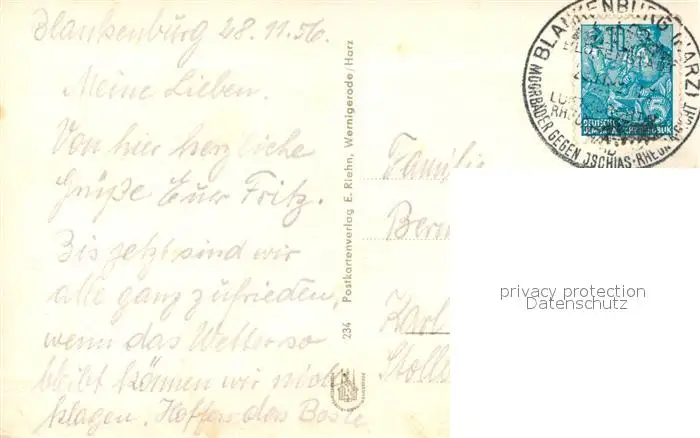 Blankenburg 28.11.56.
Meine Lieben.
Von hier herzliche
Grüße Euer Fritz.
Bis jetzt sind wir
alle ganz zufrieden,
wenn das Wetter so
bleibt können wir nicht
klagen. Hoffen das Beste.
234 Postkartenverlag E. Riehn, Wernigerode/Harz
BLANKENBURG (HARZ)
MOORBÄDER GEGEN ISCHIAS-RHEUMA-GICHT
DEUTSCHE
DEMOKRATISCHE REPUBLIK
5
Familie
Karl
privacy protection
Datenschutz